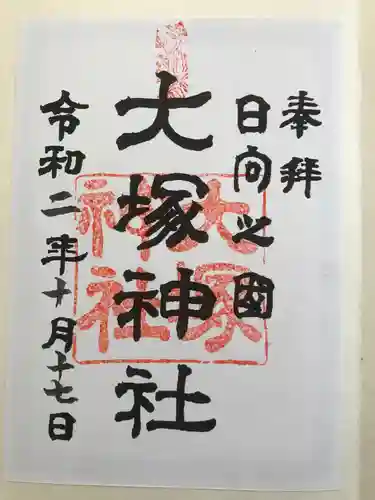 奉拝
日向之国
大塚神社
大塚
神社
令和二年十月十七日